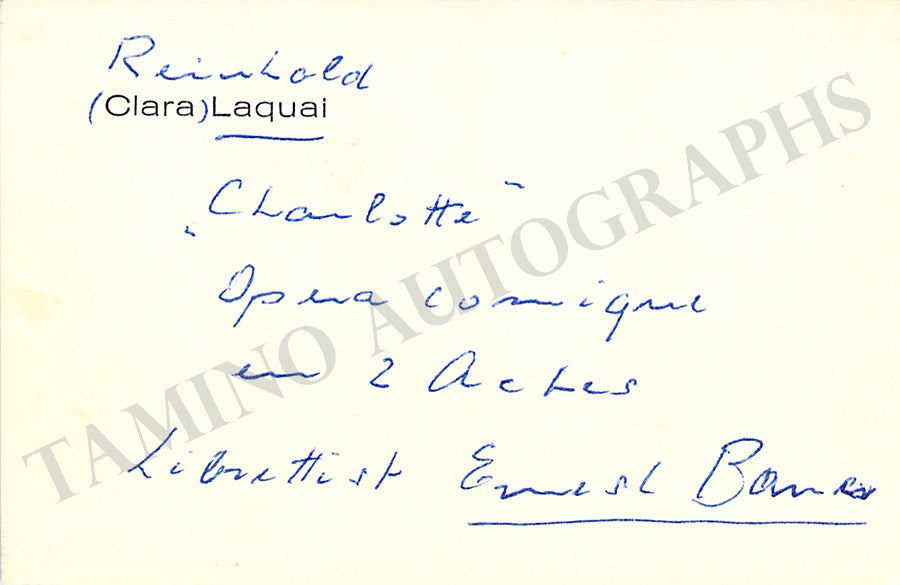 Reinhold
(Clara) Laquai
„Charlotte"
Opera comique
en 2 Actes
Librettist Ernest
TAMINO AUTOGRAPHS